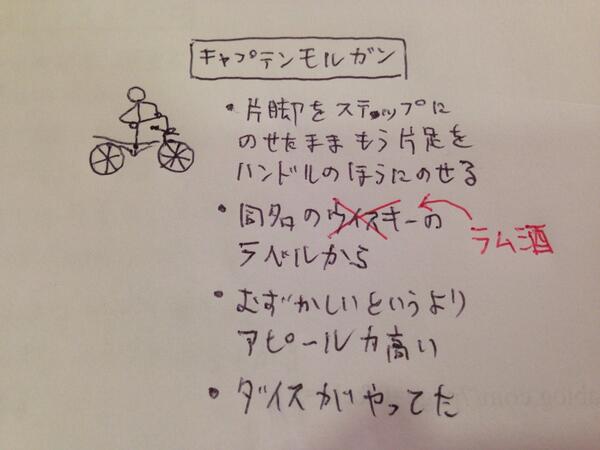 キャプテンモルガン
・片脚をステップに
のせたままもう片足を
ハンドルのほうにのせる
・同名のウイスキーの
ラム酒
ラベルから
・むずかしいというより
アピール力高い
・ダイスがやってた